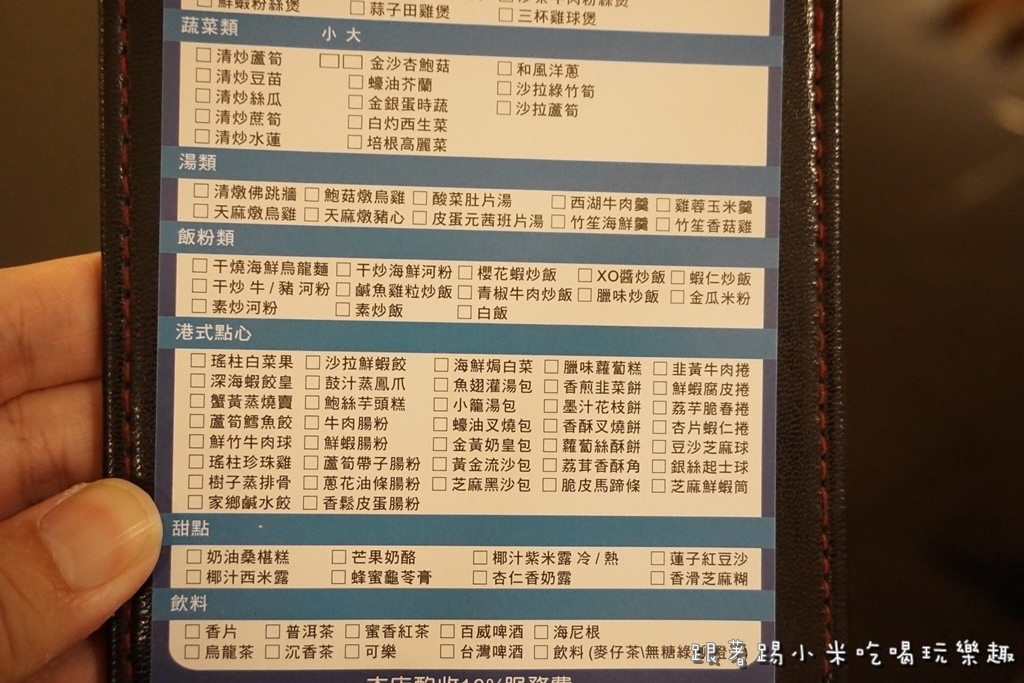 鮮蝦粉絲煲 □ 蒜子田雞煲
□ 三杯雞球煲
蔬菜類 小 大
□ 清炒蘆筍 □□ 金沙杏鮑菇 □ 和風洋蔥
□ 清炒豆苗 □ 蠔油芥蘭 □ 沙拉綠竹筍
□ 清炒絲瓜 □ 金銀蛋時蔬 □ 沙拉蘆筍
□ 清炒蔗筍 □ 白灼西生菜
□ 清炒水蓮 □ 培根高麗菜
湯類
□ 清燉佛跳牆 □ 鮑菇燉烏雞 □ 酸菜肚片湯 □ 西湖牛肉羹 □ 雞蓉玉米羹
□ 天麻燉烏雞 □ 天麻燉豬心 □ 皮蛋元茜班片湯 □ 竹笙海鮮羹 □ 竹笙香菇雞
飯粉類
□ 干燒海鮮烏龍麵 □ 干炒海鮮河粉 □ 櫻花蝦炒飯 □ XO醬炒飯 □ 蝦仁炒飯
□ 干炒 牛 / 豬 河粉 □ 鹹魚雞粒炒飯 □ 青椒牛肉炒飯 □ 臘味炒飯 □ 金瓜米粉
□ 素炒河粉 □ 素炒飯 □ 白飯
港式點心
□ 瑤柱白菜果 □ 沙拉鮮蝦餃 □ 海鮮焗白菜 □ 臘味蘿蔔糕 □ 韭黃牛肉捲
□ 深海蝦餃皇 □ 鼓汁蒸鳳爪 □ 魚翅灌湯包 □ 香煎韭菜餅 □ 鮮蝦腐皮捲
□ 蟹黃蒸燒賣 □ 鮑絲芋頭糕 □ 小籠湯包 □ 墨汁花枝餅 □ 荔芋脆春捲
□ 蘆筍鱈魚餃 □ 牛肉腸粉 □ 蠔油叉燒包 □ 香酥叉燒餅 □ 杏片蝦仁捲
□ 鮮竹牛肉球 □ 鮮蝦腸粉 □ 金黃奶皇包 □ 蘿蔔絲酥餅 □ 豆沙芝麻球
□ 瑤柱珍珠雞 □ 蘆筍帶子腸粉 □ 黃金流沙包 □ 荔茸香酥角 □ 銀絲起士球
□ 樹子蒸排骨 □ 蔥花油條腸粉 □ 芝麻黑沙包 □ 脆皮馬蹄條 □ 芝麻鮮蝦筒
□ 家鄉鹹水餃 □ 香鬆皮蛋腸粉
甜點
□ 奶油桑椹糕 □ 芒果奶酪 □ 椰汁紫米露 冷 / 熱 □ 蓮子紅豆沙
□ 椰汁西米露 □ 蜂蜜龜苓膏 □ 杏仁香奶露 □ 香滑芝麻糊
飲料
□ 香片 □ 普洱茶 □ 蜜香紅茶 □ 百威啤酒 □ 海尼根
□ 烏龍茶 □ 沉香茶 □ 可樂 □ 台灣啤酒 □ 飲料 (麥仔茶\無糖綠
本店酌收10%服務費
跟著踢小米吃喝玩樂趣